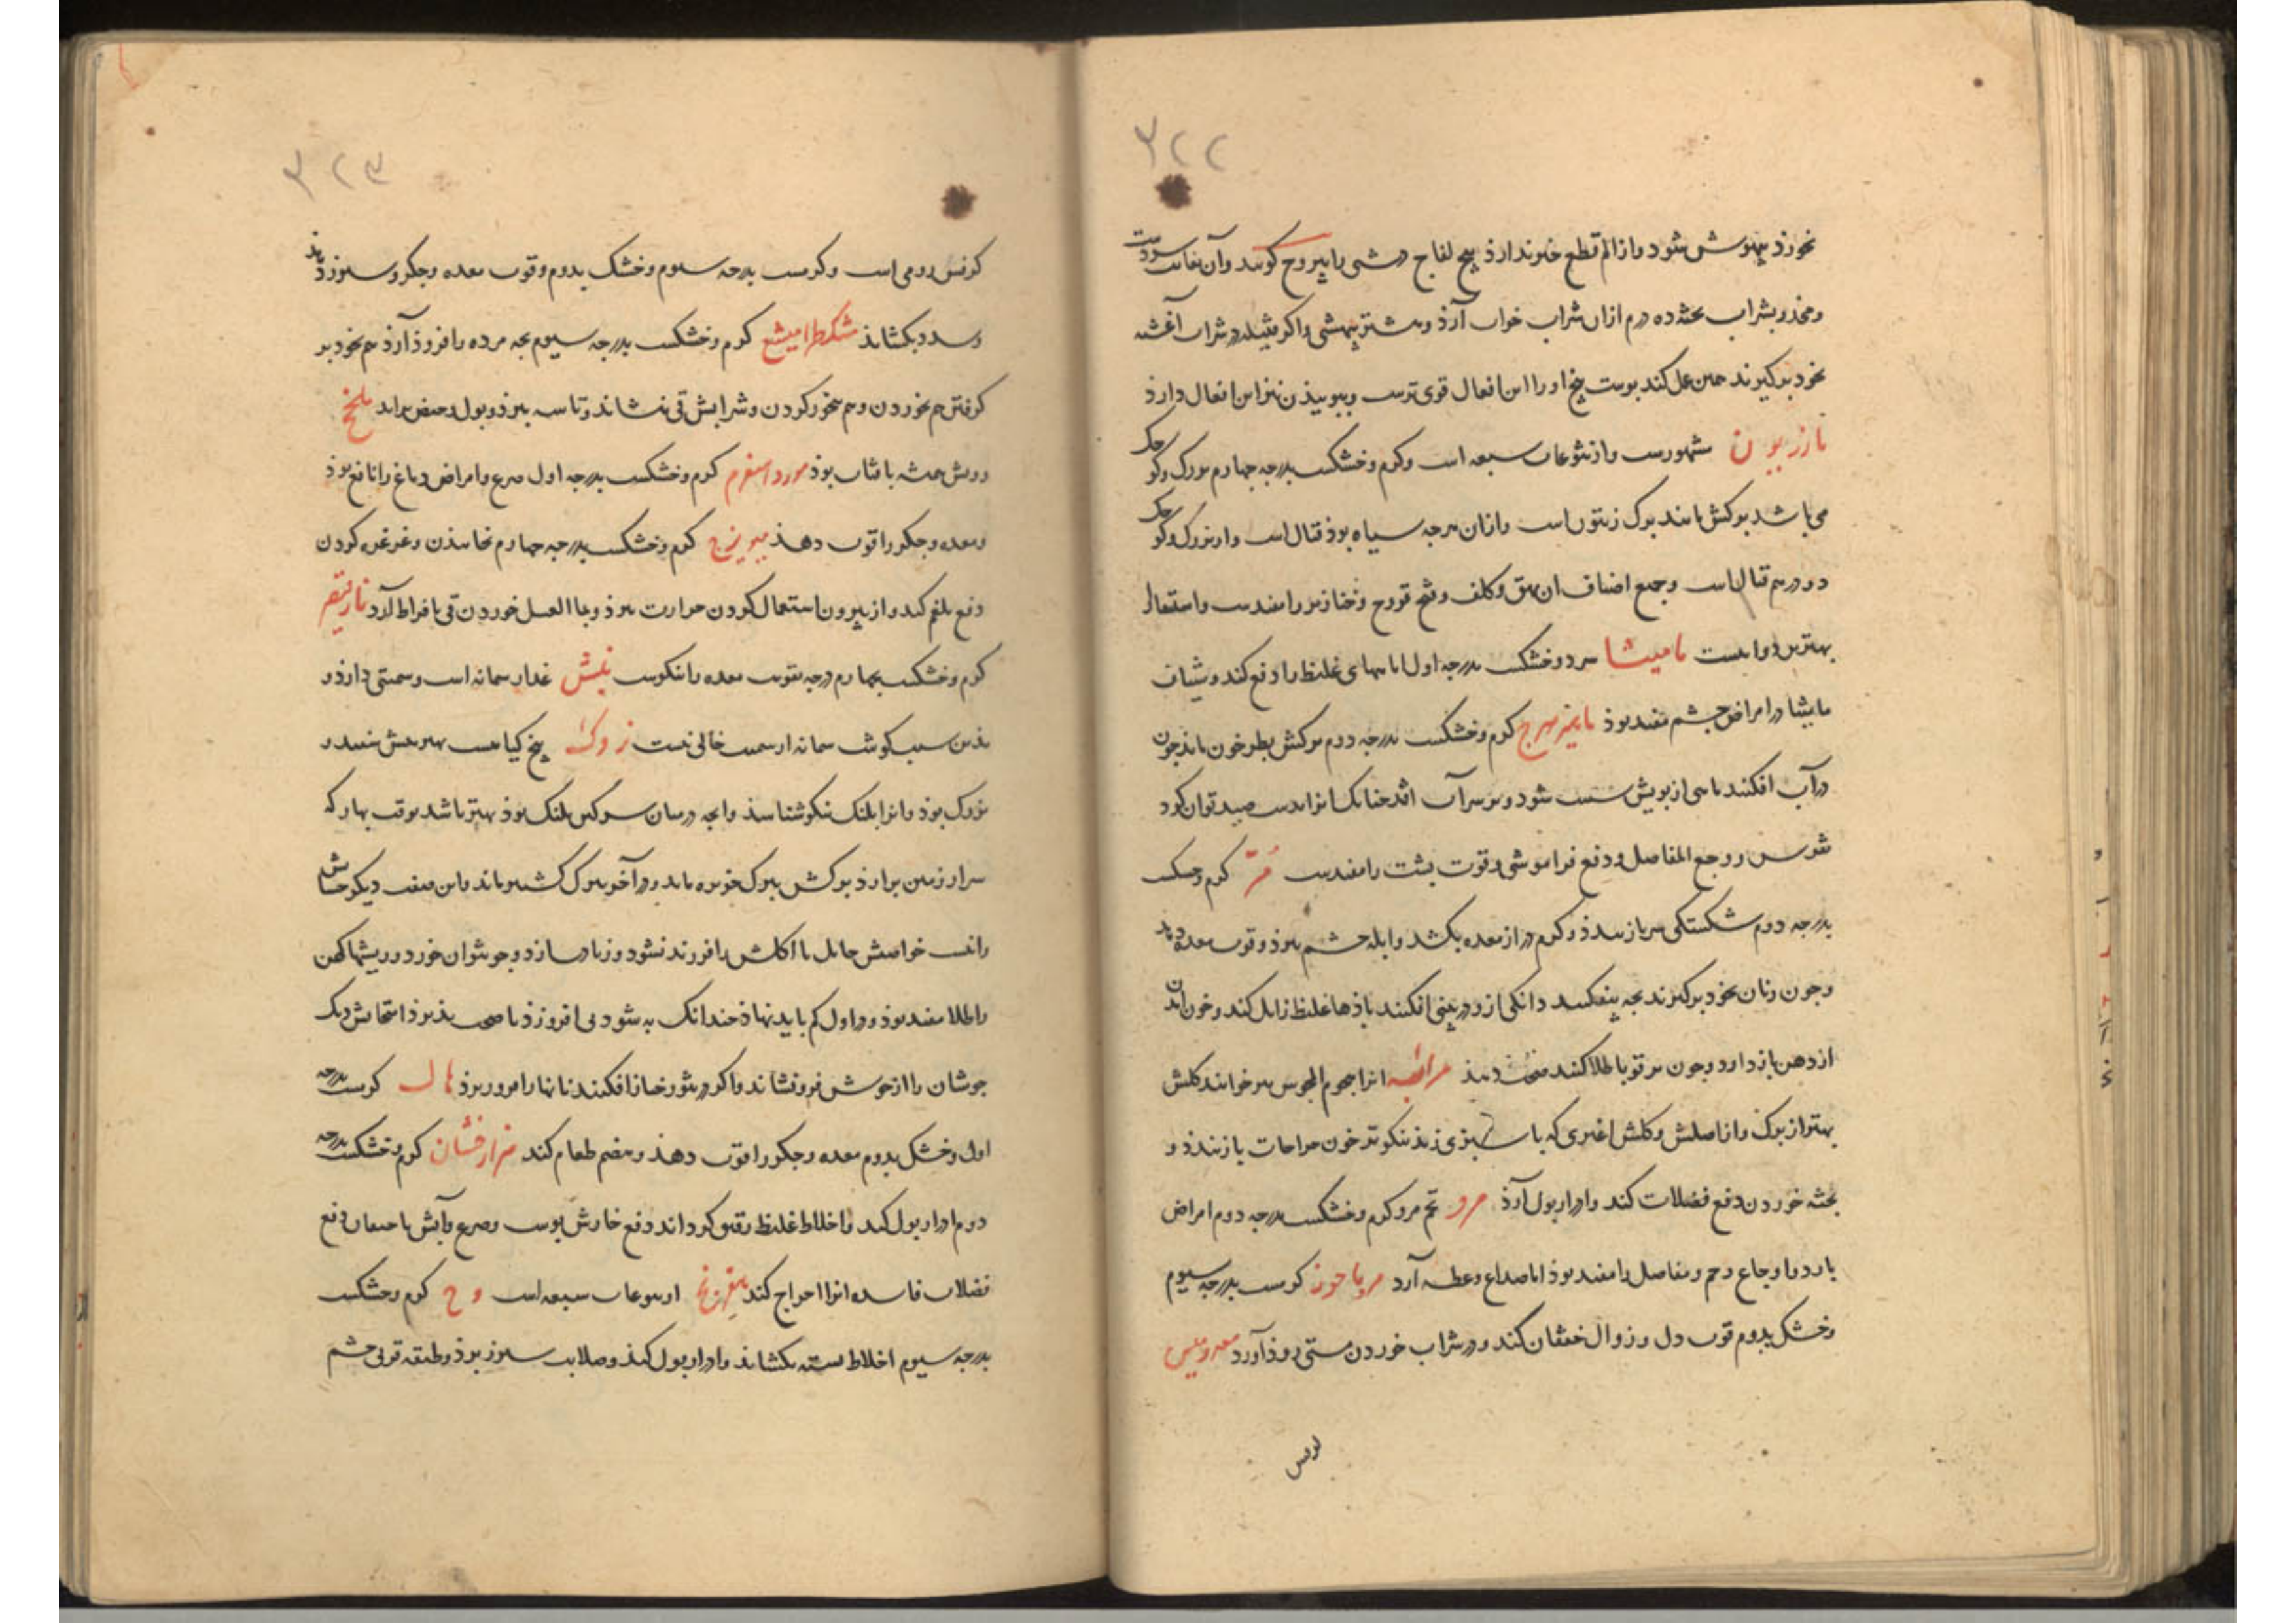 ۳۲۲
نخورذ بیهوش شود و از الم قطع خبر ندارذ بیخ لفاح دشتی را یبروح کویند و آن بغایت سردست
و مخدر بشراب بخته ده درم ازان شراب خواب آرذ و بیشتر بیهشی و اکر فتیله در شراب آغشته
بخود برکیرند همین عمل کند بوست بیخ او را این افعال قوی ترست و ببوییذن نیز این افعال دارذ
مازریون مشهورست و از یتوعات سبعه است و کرم و خشکست بدرجه چهارم بزرک و کوچک
می باشد برکش مانند برک زیتون است و ازان هرچه سیاه بوذ قتال است و از بزرک و کوچک
دو درم قتال است و جمیع اصناف ان بهق و کلف و قروح و خنازیر را مفیدست و استعمال
بهترین دوا هست مامیثا سرد و خشکست بدرجه اول اماسهای غلیظ را دفع کند و شیاف
مامیثا در امراض چشم مفید بوذ ماهیزهرج کرم و خشکست بدرجه دوم برکش بطرخون ماند چون
در آب افکنند ماهی از بویش سست شود و بر سر آب افتد چنانک انرا بدست صید توان کرد
نقرس و وجع المفاصل و دفع فراموشی و قوت بشت را مفیدست مُرّ کرم و خشکست
بدرجه دوم شکستکی سر باز بندذ و کرم دراز معده بکشد و ابله چشم ببرذ و قوت معده دهد
و چون زنان بخود برکیرند بچه بیفکنند دانکی ازو در بینی افکنند باذها غلیظ زایل کند و خون آمدن
از دهن باز دارد و چون بر قوبا طلا کنند صحت دهذ مرانیه انرا بخور المجوس خوانند کلش
بهتر از برک و از اصلش و کلش اغبری که با سبزی زند نیکوتر خون جراحات باز بندذ و
بخته خوردن دفع فضلات کند و ادرار بول آرذ مرو تخم مرو کرم و خشکست بدرجه دوم امراض
بارد و اوجاع رحم و مفاصل را مفید بوذ اما صداع و عطسه آرد مرماحوز کرمست بدرجه سیوم
و خشک بدوم قوت دل و زوال خفقان کند و در شراب خوردن مستی زوذ آورد
۳۲۳
کرفس رومی است و کرمست بدرجه سیوم و خشک بدوم و قوت معده و جکر و سبرز دهد
و سدد بکشاند مشکطرامیشع کرم و خشکست بدرجه سیوم بچه مرده را فروذ آرذ هم بخود بر
کرفتن هم بخوردن و هم بخور کردن و شرابش قی بنشاند و تاسه ببرذ و بول و حیض براند ملخ
رویش همیشه بافتاب بوذ مورد اسفرم کرم و خشکست بدرجه اول صرع و امراض دماغ را نافع بوذ
و معده و جکر را قوت دهذ میویزج کرم و خشکست بدرجه چهارم بخاییذن و غرغره کردن
دفع بلغم کند و از بیرون استعمال کردن حرارت ببرذ و بماالعسل خوردن قی بافراط آرد نارقیصر
کرم و خشکست بچهارم درجه بقوت معده را نیکوست بیش غذاء سمانه است و سمیتی دارذ و
بذین سبب کوشت سمانه از سمیت خالی نیست زوک بیخ کیاهیست بهترینش سفید و
بزرک بوذ و انرا بلنک نیکو شناسذ و انچه درمیان سرکین بلنک بوذ بهتر باشد بوقت بهار که
سر از زمین برارذ برکش ببرک خربزه ماند و در آخر ببرک کشنیز ماند و این صفت دیکر حشایش
را نیست خواصش حامل با اکلش را فرزند نشود و زیاده سازد و جو بتوان خورد و ریشها کهن
را طلا مفید بوذ و در اول کم باید نهاذ چندانک به شود می افزوذ تا صحت بذیرذ امتحانش دیک
جوشان را از جوش فرو نشاند و اکر در تنور خباز افکنند نانها را فرو ریزذ هال کرمست بدرجه
اول و خشک بدوم معده و جکر را قوت دهذ و هضم طعام کند هزارفشان کرم و خشکست بدرجه
دوم ادرار بول کند و اخلاط غلیظ رقیق کرداند دفع خارش بوست و صرع و آبش باحتقان دفع
فضلات فاسده انرا اخراج کند از یتوعات سبعه است وج کرم و خشکست
بدرجه سیوم اخلاط بسته بکشاند و ادرار بول کند و صلابت سبرز ببرذ و طبقه قرنی چشم